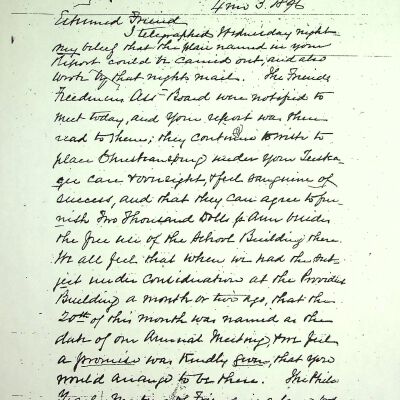 4mo 3. 1896
Esteemed Friend
I telegraphed Wednesday night
my belief that the plan named in your
Report could be carried out, and also
wrote by that nights mail. The Friends
Freedmens Assn Board were notified to
meet today, and your report was then
read to them; they continue to wish to
place Christiansburg under your Tuske-
gee care & oversight, & feel sanguine of
success, and that they can agree to fur-
nish Two Thousand Dolls p Ann besides
the free use of the School Building there.
We all feel that when we had the sub-
ject under consideration at the Provident
Building a month or two ago, that the
20th of this month was named as the
date of our Annual Meeting, & we feel
a promise was kindly given, that you
would arrange to be there. The Phila
Yearly Meeting of Friends